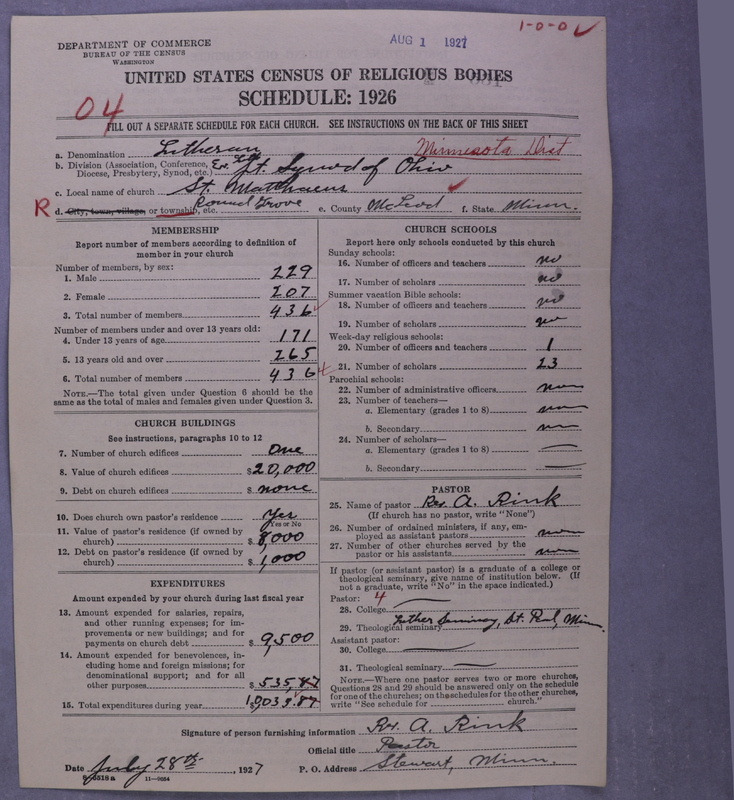 1-0-0 ✓
AUG 1 1927
DEPARTMENT OF COMMERCE
BUREAU OF THE CENSUS
WASHINGTON
UNITED STATES CENSUS OF RELIGIOUS BODIES
SCHEDULE: 1926
04
FILL OUT A SEPARATE SCHEDULE FOR EACH CHURCH. SEE INSTRUCTIONS ON THE BACK OF THIS SHEET
a. Denomination Lutheran Minnesota Dist
b. Division (Association, Conference, Diocese, Presbytery, Synod, etc.) Ev. Lt. Synod of Ohio
c. Local name of church St. Matthaeus
R d. City, town, village, or township, etc. Round Grove e. County McLeod f. State Minn.
MEMBERSHIP
Report number of members according to definition of
member in your church
Number of members, by sex:
1. Male 229
2. Female 207
3. Total number of members 436
Number of members under and over 13 years old:
4. Under 13 years of age 171
5. 13 years old and over 265
6. Total number of members 436
NOTE.—The total given under Question 6 should be
same as the total of males and females given under Question 3.
CHURCH BUILDINGS
See instructions, paragraphs 10 to 12
7. Number of church edifices One
8. Value of church edifices $20,000
9. Debt on church edifices $ none
10. Does church own pastor's residence Yes
Yes or No
11. Value of pastor's residence (if owned by
church) $ 8,000
12. Debt on pastor's residence (if owned by
church) $ 1,000
EXPENDITURES
Amount expended by your church during last fiscal year
13. Amount expended for salaries, repairs,
and other running expenses; for im-
provements or new buildings; and for
payments on church debt $ 9,500
14. Amount expended for benevolences, in-
cluding home and foreign missions; for
denominational support; and for all
other purposes $ 535,87
15. Total expenditures during year 10,035.87
CHURCH SCHOOLS
Report here only schools conducted by this church
Sunday schools:
16. Number of officers and teachers no
17. Number of scholars no
Summer vacation Bible schools:
18. Number of officers and teachers no
19. Number of scholars no
Week-day religious schools:
20. Number of officers and teachers 1
21. Number of scholars 23
Parochial schools:
22. Number of administrative officers none
23. Number of teachers—
a. Elementary (grades 1 to 8) none
b. Secondary none
24. Number of scholars—
a. Elementary (grades 1 to 8) —
b. Secondary —
PASTOR
25. Name of pastor Rev. A. Rink
(If church has no pastor, write "None")
26. Number of ordained ministers, if any, em-
ployed as assistant pastors none
27. Number of other churches served by the
pastor or his assistants none
If pastor (or assistant pastor) is a graduate of a college or
theological seminary, give name of institution below. (If
not a graduate, write "No" in the space indicated.)
Pastor: 4
28. College —
29. Theological seminary Luther Seminary, St. Paul, Minn.
Assistant pastor:
30. College —
31. Theological seminary —
NOTE.—Where one pastor serves two or more churches,
Questions 28 and 29 should be answered only on the schedule
for one of the churches; on the schedules for the other churches,
write "See schedule for church."
Signature of person furnishing information Rev. A. Rink
Official title Pastor
Date July 28th, 1927 P. O. Address Stewart, Minn.
8-6518a 11—9664